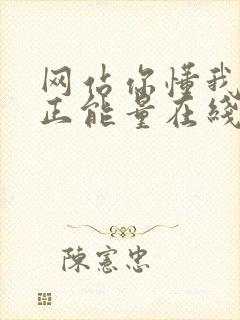 网站你懂我
正能量在线
陳憲忠